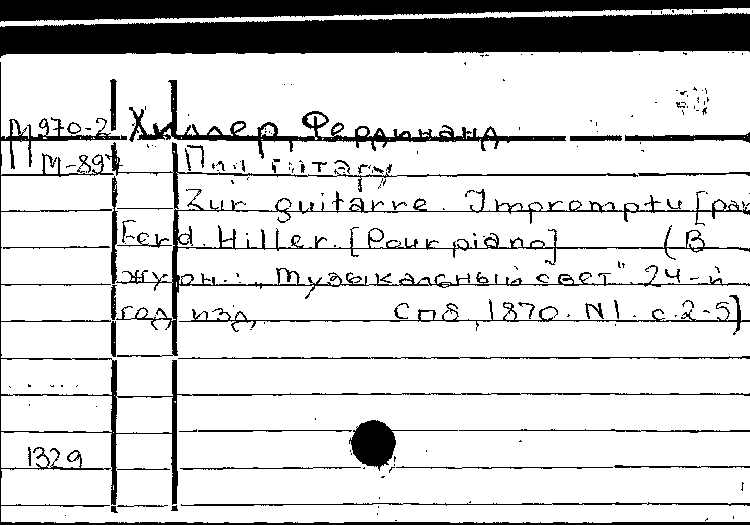 М970-2 Хиллер, Фердинанд.
М-897 Под гитару
Zur guitarre. Impromptu [par
Ferd. Hiller. [Pour piano] (В
журн.: "Музыкальный свет" 24-й
год изд. Спб, 1870. N1. с.2-5)
1329